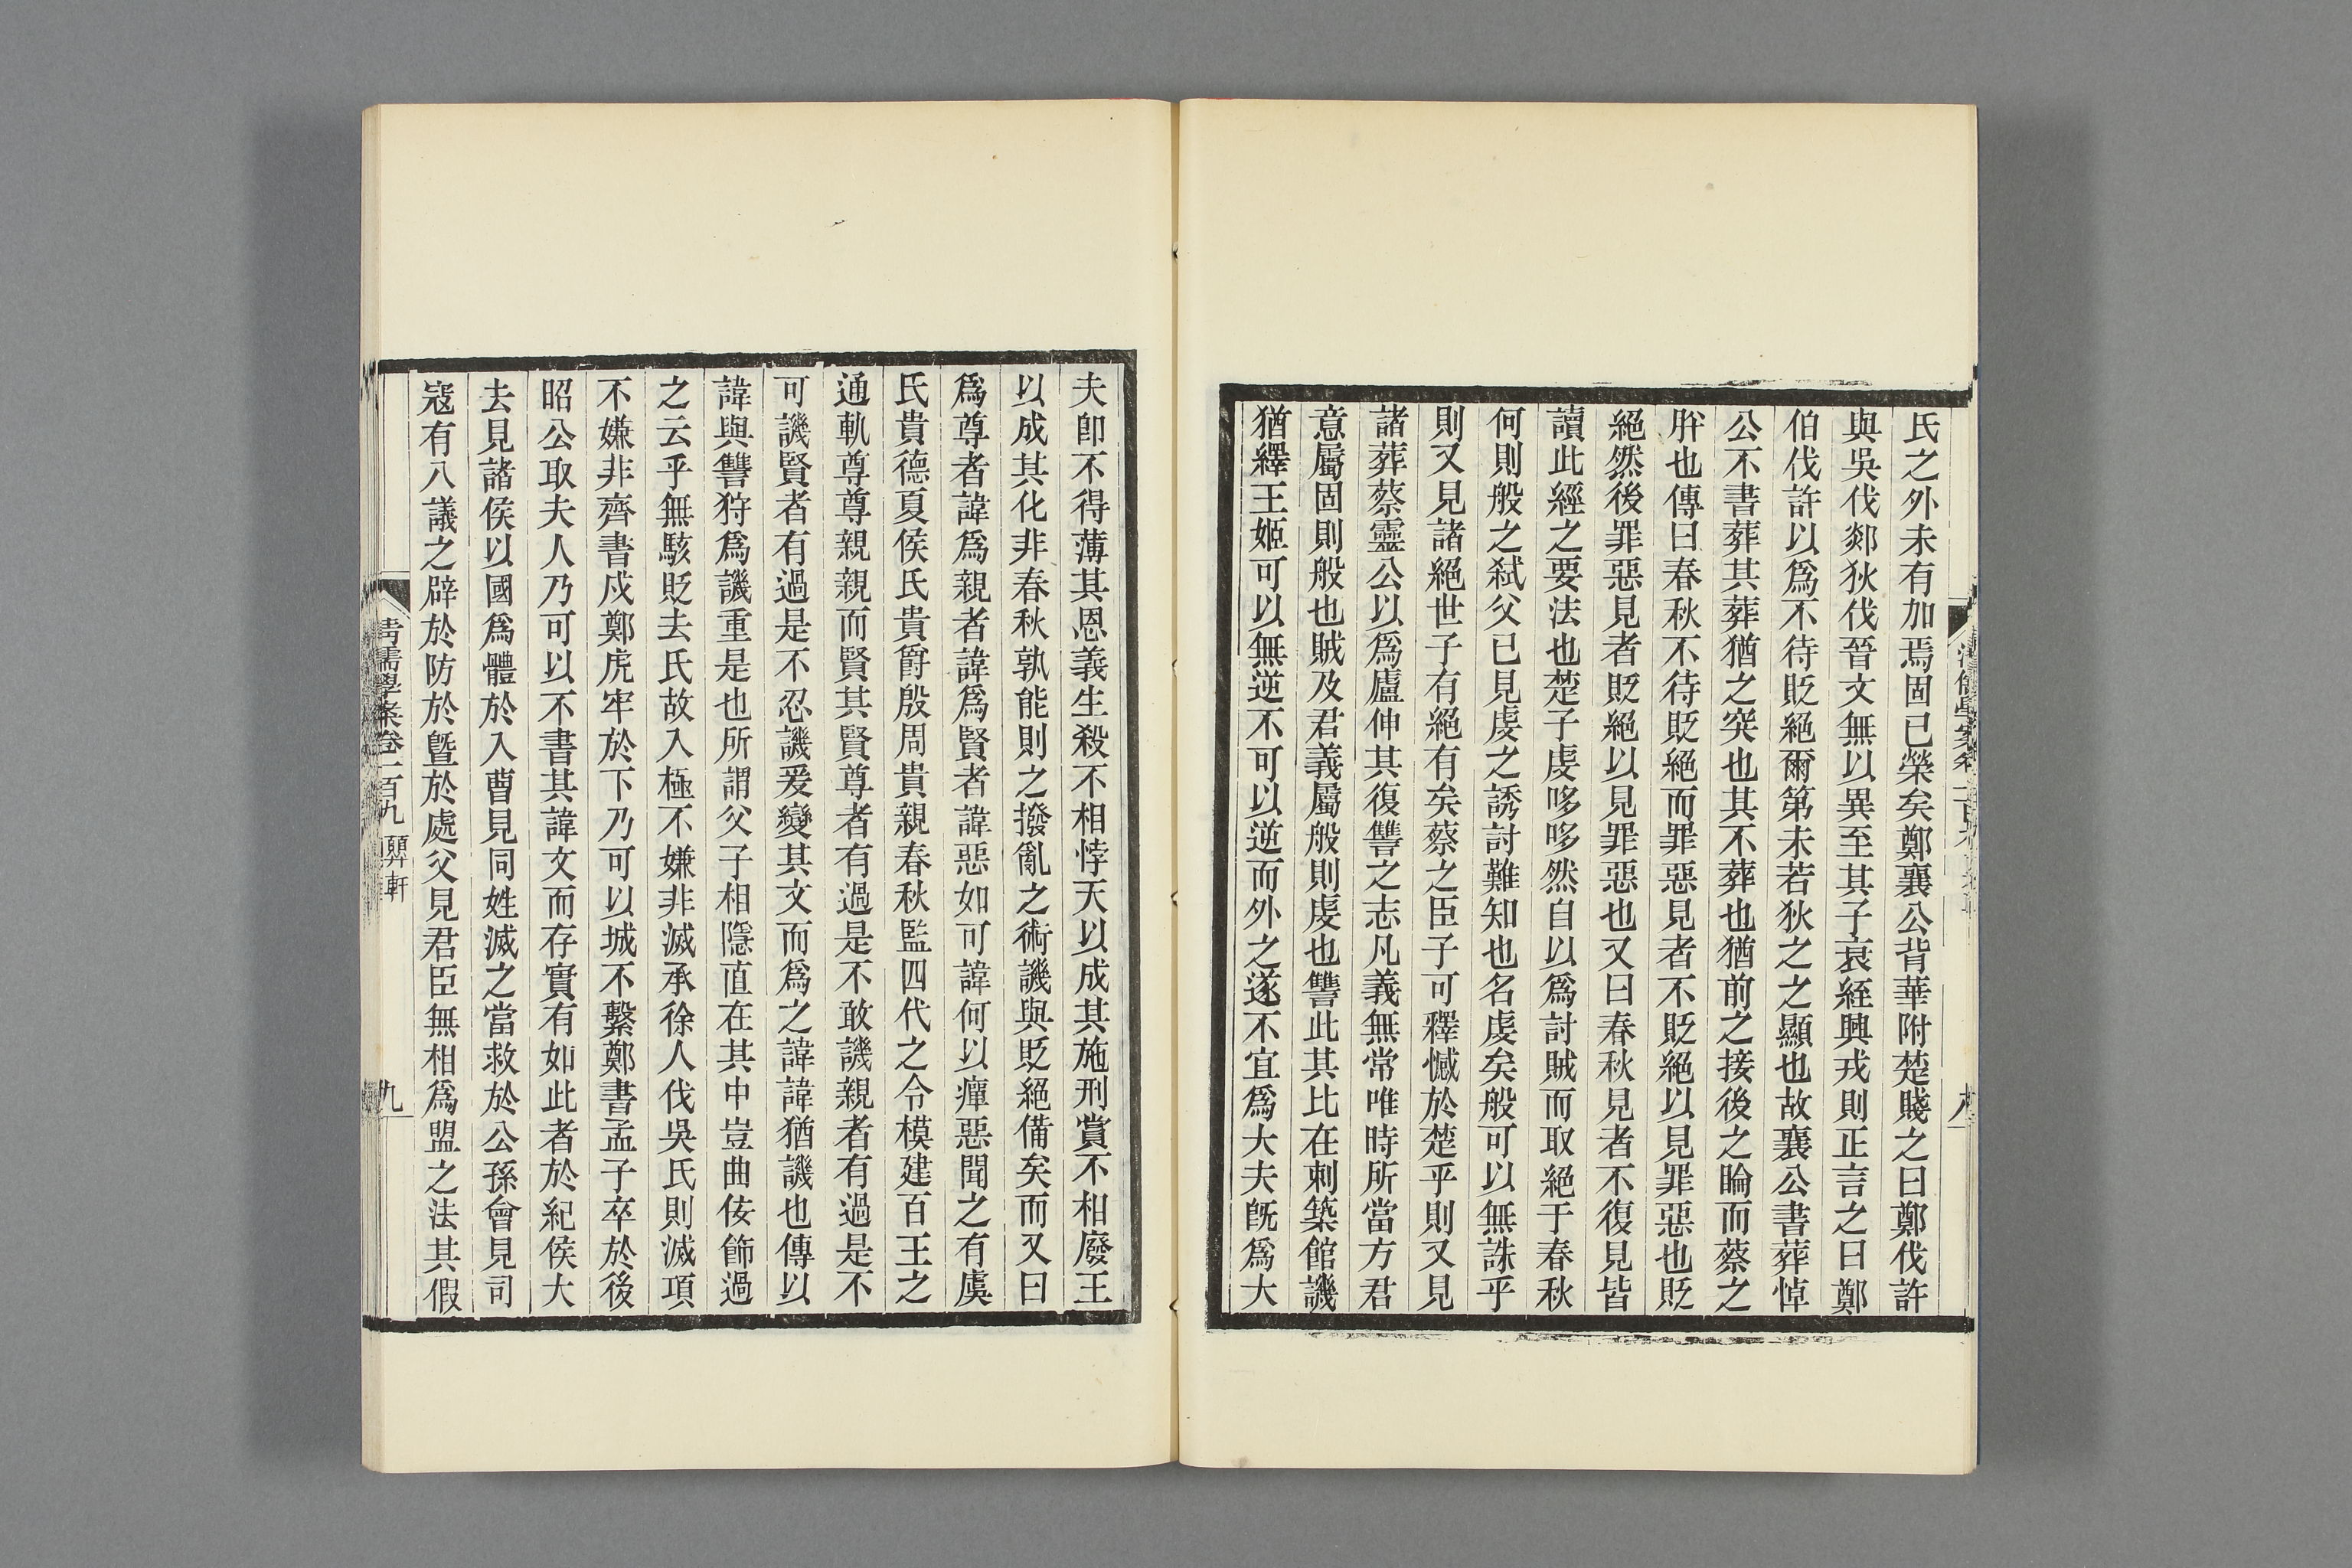 氏之外未有加焉固已榮矣鄭襄公背華附楚賤之曰鄭伐許
與吳伐郯狄伐晉文無以異至其子衰絰興戎則正言之曰鄭
伯伐許以爲不待貶絕爾第未若狄之之顯也故襄公書葬悼
公不書葬其葬猶之突也其不葬也猶前之接後之睔而蔡之
肸也傳曰春秋不待貶絕而罪惡見者不貶絕以見罪惡也貶
絕然後罪惡見者貶絕以見罪惡也又曰春秋見者不復見皆
讀此經之要法也楚子虔哆哆然自以爲討賊而取絕于春秋
何則般之弒父已見虔之誘討難知也名虔矣般可以無誅乎
則又見諸絕世子有絕有矣蔡之臣子可釋憾於楚乎則又見
諸葬蔡靈公以爲廬伸其復讐之志凡義無常唯時所當方君
意屬固則般也賊及君義屬般則虔也讐此其比在刺築館譏
猶繹王姬可以無逆不可以逆而外之遂不宜爲大夫旣爲大
夫卽不得薄其恩義生殺不相悖天以成其施刑賞不相廢王
以成其化非春秋孰能則之撥亂之術譏與貶絕備矣而又曰
爲尊者諱爲親者諱爲賢者諱惡如可諱何以癉惡聞之有虞
氏貴德夏侯氏貴爵殷周貴親春秋監四代之令模建百王之
通軌尊尊親親而賢其賢尊者有過是不敢譏親者有過是不
可譏賢者有過是不忍譏爰變其文而爲之諱諱猶譏也傳以
諱與讐狩爲譏重是也所謂父子相隱直在其中豈曲佞飾過
之云乎無駭貶去氏故入極不嫌非滅承徐人伐吳氏則滅項
不嫌非齊書戍鄭虎牢於下乃可以城不繫鄭書孟子卒於後
昭公取夫人乃可以不書其諱文而存實有如此者於紀侯大
去見諸侯以國爲體於入曹見同姓滅之當救於公孫會見司
寇有八議之辟於防於曁於處父見君臣無相爲盟之法其假
清儒學案卷一百九 顨軒
九